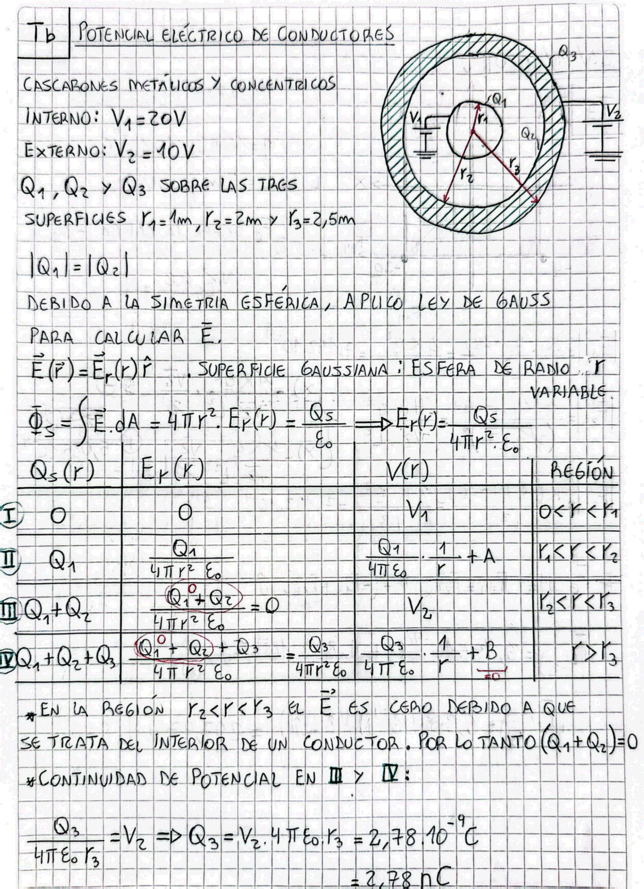 Tb POTENCIAL ELÉCTRICO DE CONDUCTORES
CASCARONES METÁLICOS Y CONCENTRICOS
INTERNO: V₁=20V
EXTERNO: V₂=10V
Q₁, Q₂ Y Q₃ SOBRE LAS TRES
SUPERFICIES r₁=1m, r₂=2m Y r₃=2,5m
Q₃
Q₁
V₁
r₁
V₂
Q₂
r₂
r₃
|Q₁|=|Q₂|
DEBIDO A LA SIMETRIA ESFÉRICA, APLICO LEY DE GAUSS
PARA CALCULAR E̅.
E⃗(r⃗)=E⃗r(r) r̂ . SUPERFICIE GAUSSIANA: ESFERA DE RADIO r
VARIABLE.
Φ̅s = ∫ E⃗.dA = 4πr². Er(r) = Qs/ε₀ ⟹ Er(r)= Qs/4πr².ε₀
Qs(r) Er(r) V(r) REGIÓN
I 0 0 V₁ 0<r<r₁
II Q₁ Q₁/4πr² ε₀ Q₁/4πε₀ · 1/r + A r₁<r<r₂
III Q₁+Q₂ (Q₁+Q₂)⁰/4πr² ε₀ = 0 V₂ r₂<r<r₃
IV Q₁+Q₂+Q₃ (Q₁+Q₂)⁰+Q₃/4πr² ε₀ = Q₃/4πr²ε₀ Q₃/4πε₀ · 1/r + B r>r₃
=0
*EN LA REGIÓN r₂<r<r₃ EL E⃗ ES CERO DEBIDO A QUE
SE TRATA DEL INTERIOR DE UN CONDUCTOR. POR LO TANTO (Q₁+Q₂)=0
*CONTINUIDAD DE POTENCIAL EN III Y IV:
Q₃/4πε₀ r₃ = V₂ ⇒ Q₃ = V₂.4πε₀.r₃ = 2,78.10⁻⁹C
= 2,78 nC